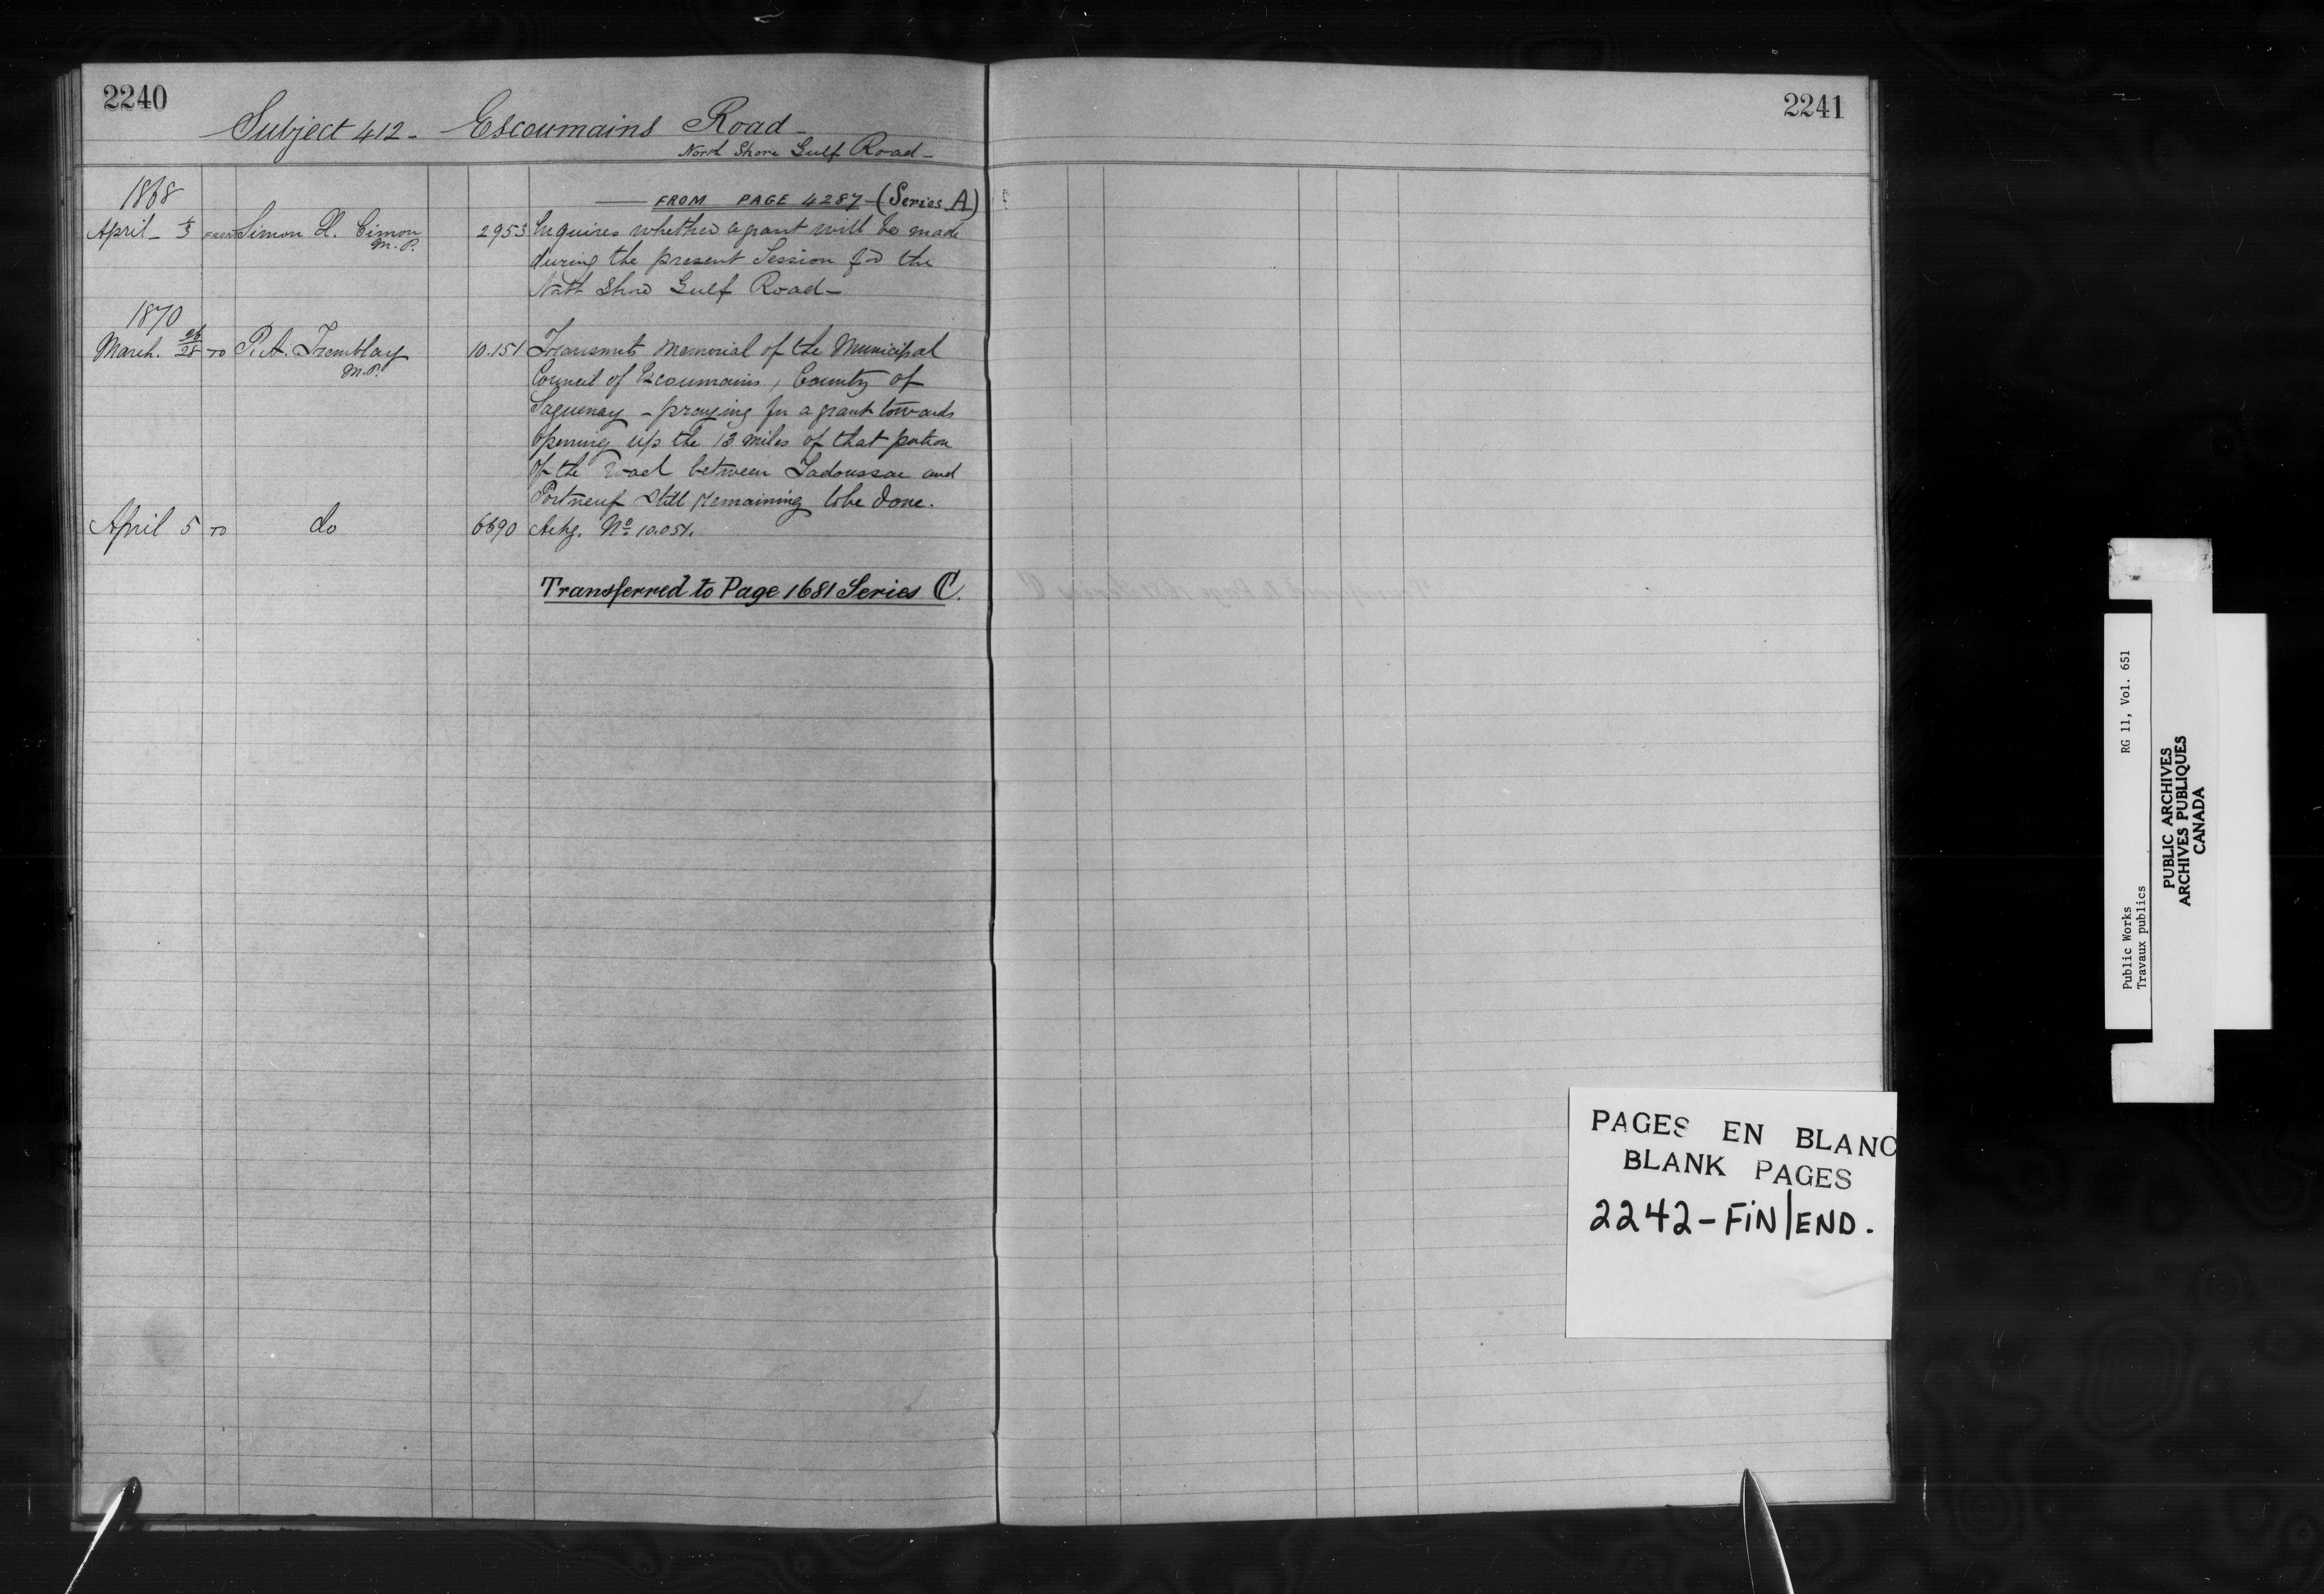 2240
Subject 412 - Escoumains Road -
North Shore Gulf Road -
1868
FROM PAGE 4287 - (Series A)
April - 1/3 FROM Simon X. Cimon M.P. 2953 Inquires whether a grant will be made
during the present Session for the
North Shore Gulf Road -
1870
March. 26/28 TO P.A. Tremblay M.P. 10.151 Transmits Memorial of the Municipal
Council of Escoumains, County of
Saguenay - praying for a grant towards
opening up the 13 miles of that portion
of the road between Tadoussac and
Portneuf still remaining to be done.
April 5 TO do 6690 Ackg. No 10.051.
Transferred to Page 1681 Series C.
2241
PAGES EN BLANC
BLANK PAGES
2242 - FIN/END.
Public Works RG 11, Vol. 651
Travaux publics
PUBLIC ARCHIVES
ARCHIVES PUBLIQUES
CANADA